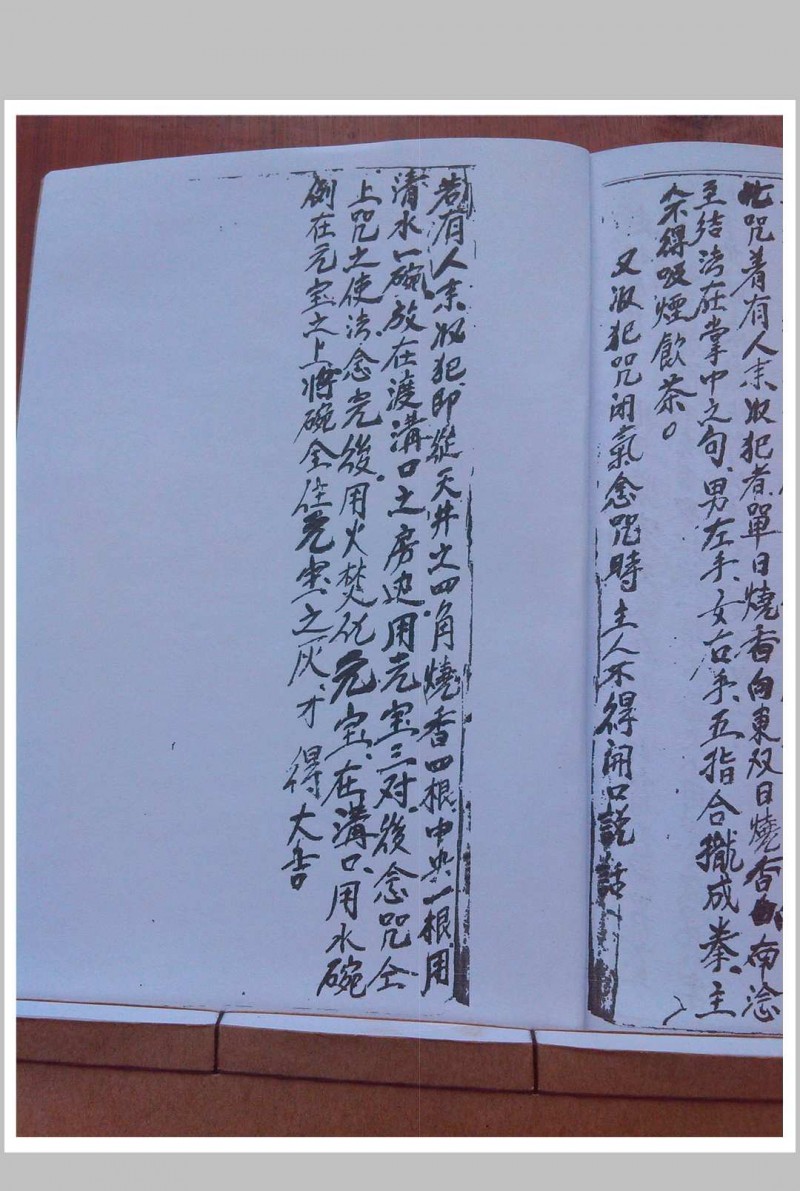 此咒着有人来收犯者單日燒香向東双日燒香向南念
至结法在掌中之句、男左手、女右手、五指合攏成拳、主
人不得吸煙飲茶。
又收犯咒闭氣念咒時主人不得開口說話
若有人来收犯、即從天井之四角燒香四根、中央一根、用
清水一碗、放在渡溝口之房边、用元宝三对、後念咒全
上咒之使法、念完後、用火焚化元宝、在溝口、用水碗
倒在元宝之上、將碗全住元宝之灰、才得大吉